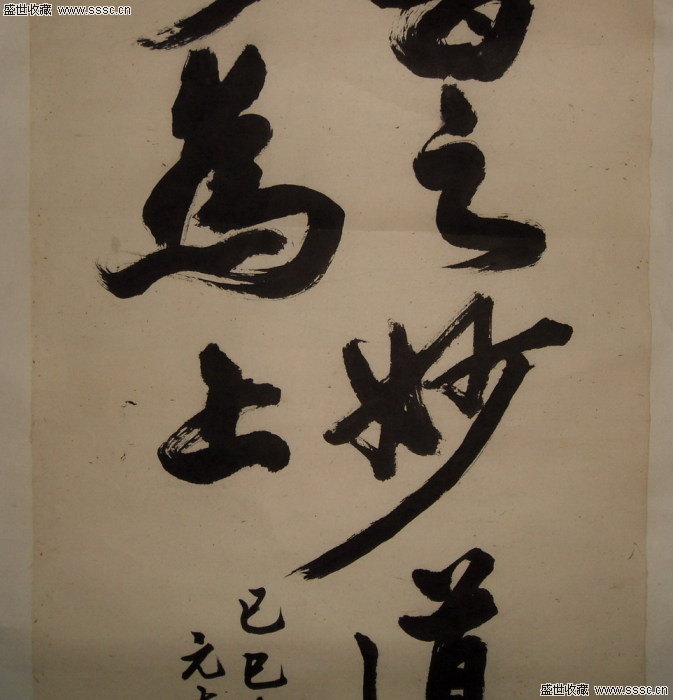 盛世收藏 www.sssc.cn
之妙道
為上
己巳
元
盛世收藏 www.sssc.cn